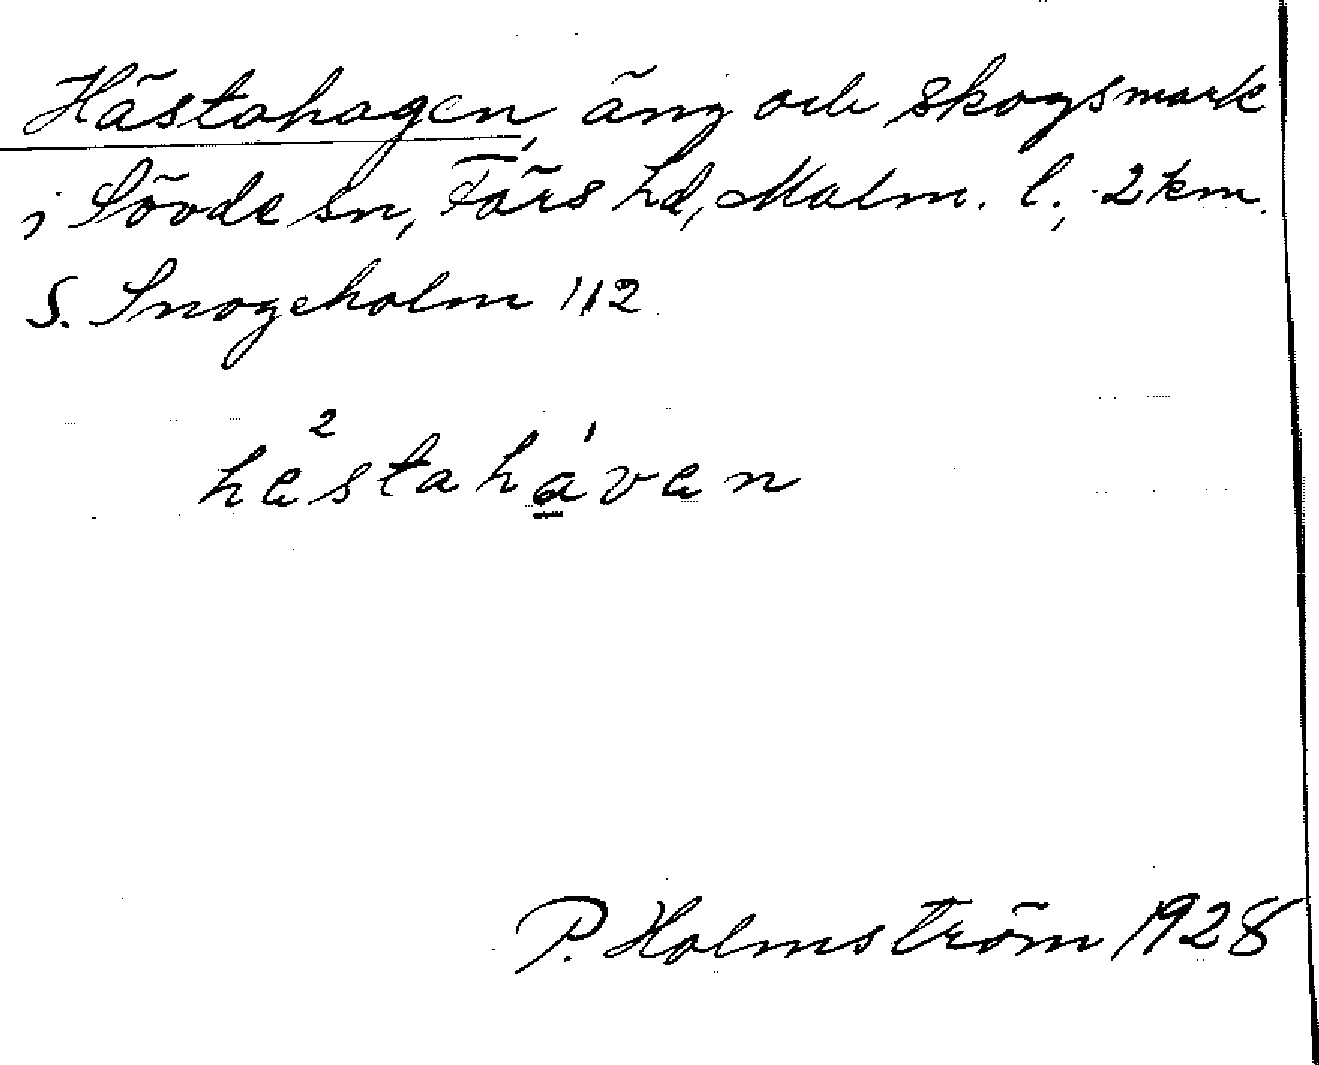 Hästahagen, äng och skogsmark
i Sövde sn, Färs hd, Malm. l., 2 km.
S. Snogeholm 1/12
hes²tahá̱ven
P. Holmström 1928